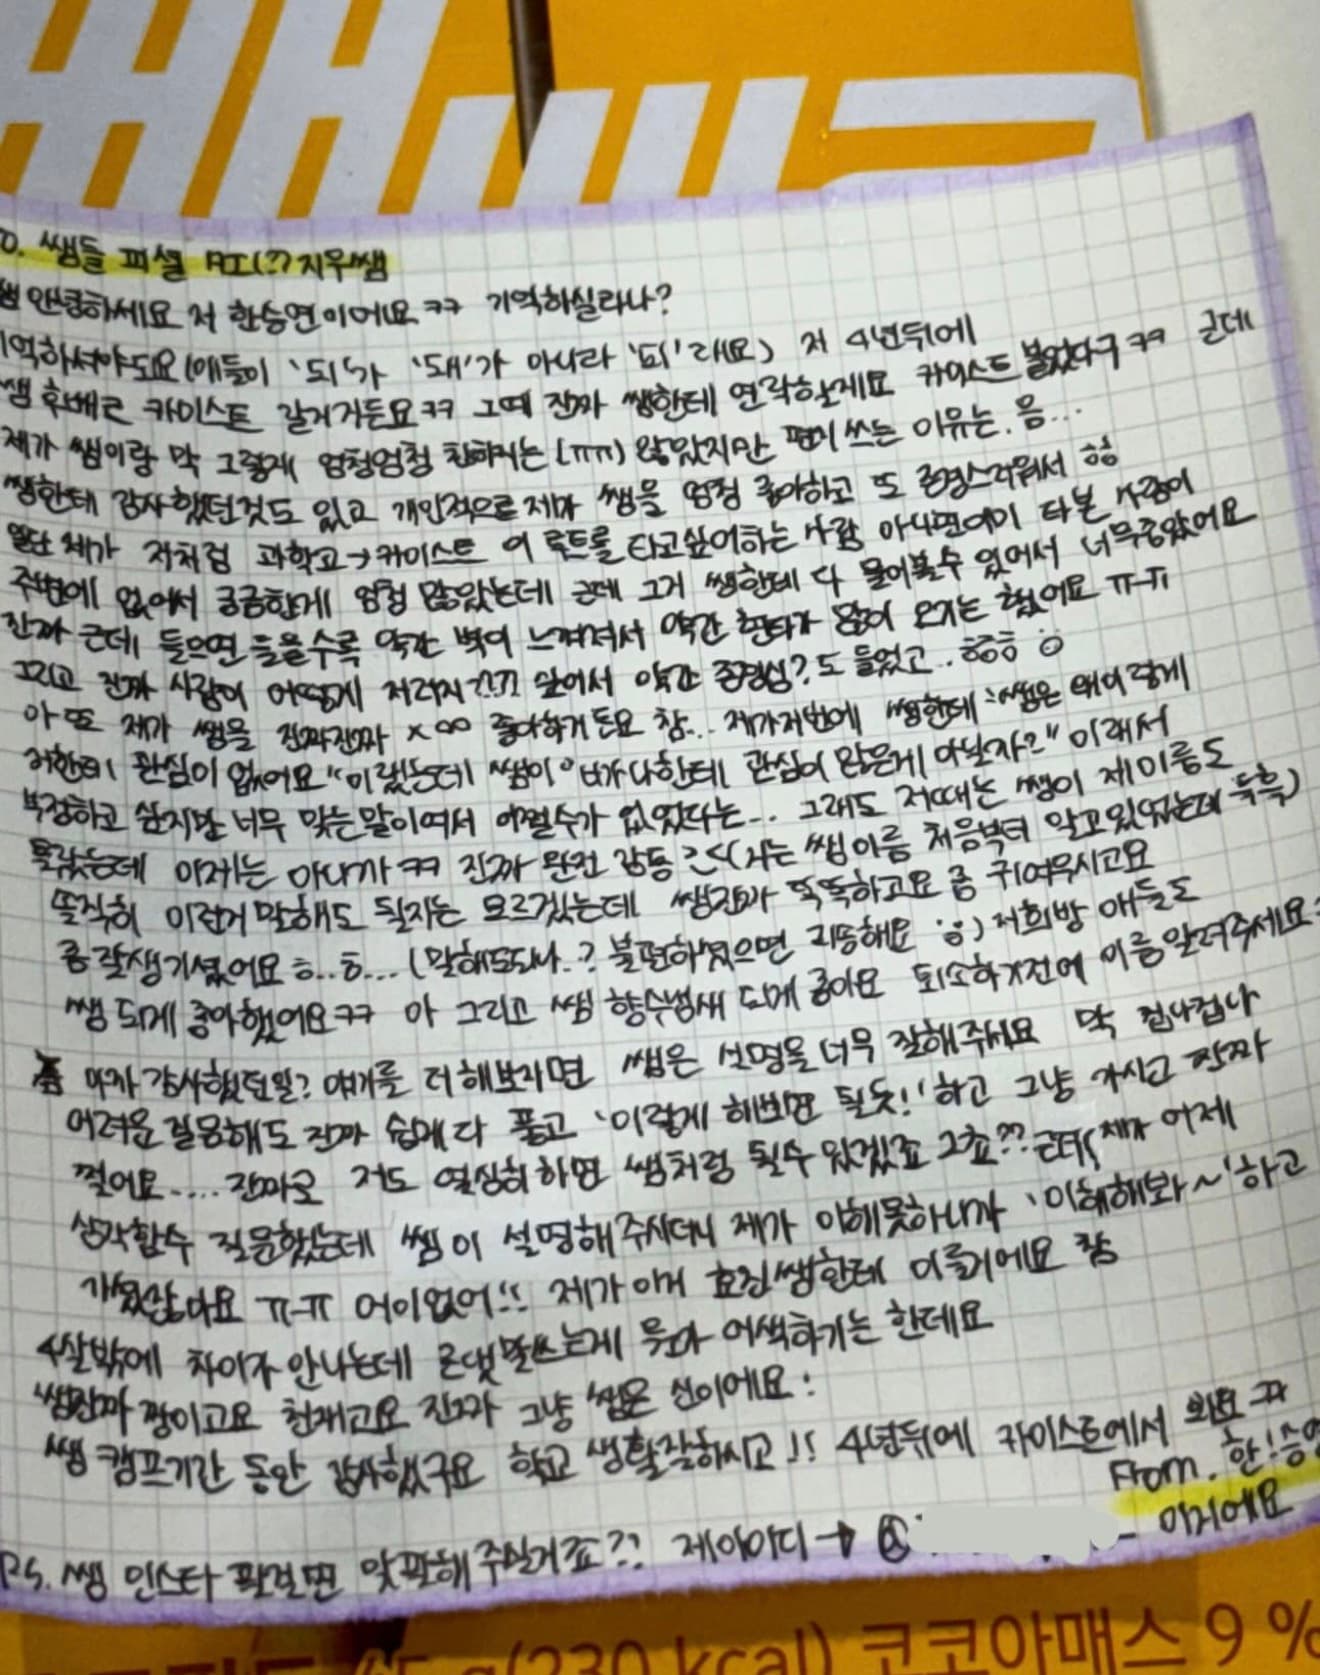 쌤들 피셜 지우쌤
쌤 안녕하세요 저 한승연이에요 ㅋㅋ 기억하실라나?
기억하셔야도요 (애들이 '되'가 '돼'가 아니라 '되'래요) 저 4년뒤에
쌤 후배로 카이스트 갈거거든요 ㅋㅋ 그때 진짜 쌤한테 연락할게요 카이스트 붙었다구 ㅋㅋ 근데
제가 쌤이랑 막 그렇게 엄청엄청 친하지는 (ㅠㅠ) 않았지만 편지 쓰는 이유는. 음...
쌤한테 감사했던것도 있고 개인적으로 제가 쌤을 엄청 좋아하고 또 존경스러워서 ㅎㅎ
일단 제가 저처럼 과학고→카이스트 이 루트를 타고싶어하는 사람 아니면 이미 타본 사람이
주변에 없어서 궁금한게 엄청 많았는데 근데 그거 쌤한테 다 물어볼수 있어서 너무좋았어요
진짜 근데 들으면 들을수록 약간 벽이 느껴져서 약간 현타가 많이 오기는 했어요 ㅠ-ㅠ
그리고 진짜 사람이 어떻게 저러지 싶어서 약간 존경심?도 들었고.. ㅎㅎㅎ
아 또 제가 쌤을 진짜진짜 x ∞ 좋아하거든요 참.. 제가저번에 쌤한테 "쌤은 왜이렇게
저한테 관심이 없어요" 이랬는데 쌤이 "너가 나한테 관심이 많은게 아닐까?" 이래서
부정하고 싶지만 너무 맞는말이여서 어쩔수가 없었다는... 그래도 저때는 쌤이 제이름도
몰랐는데 이제는 아니까 ㅋㅋ 진짜 완전 감동 (저는 쌤이름 처음부터 알고있었는데 흑흑)
솔직히 이런거 말해도 될지는 모르겠는데 쌤진짜 똑똑하고요 좀 귀여우시고요
좀 잘생기셨어요 ㅎ..ㅎ... (말해도되나..? 불편하셨으면 죄송해요) 저희방 애들도
쌤 되게 좋아했어요 ㅋㅋ 아 그리고 쌤 향수냄새 되게 좋아요 퇴소하기전에 이름알려주세요
아까 감사했던일? 얘기를 더해보자면 쌤은 설명을 너무 잘해주세요 막 겁나겁나
어려운 질문해도 진짜 쉽게 다 풀고 '이렇게 해보면 될듯!' 하고 그냥 가시고 진짜
쩔어요.... 진짜로 저도 열심히하면 쌤처럼 될수 있겠죠 그쵸?? 근데 제가 어제
삼각함수 질문했는데 쌤이 설명해주시더니 제가 이해못하니까 '이해해봐~' 하고
가셨잖아요 ㅠ-ㅠ 어이없어!! 제가 이거 효진쌤한테 이를거에요 참
4살밖에 차이가 안나는데 존댓말쓰는게 뭔가 어색하기는 한데요
쌤진짜 짱이고요 천재고요 진짜 그냥 쌤은 신이에요
쌤 캠프기간 동안 감사했구요 학교 생활잘하시고!! 4년뒤에 카이스트에서 봐요 ㅋㅋ
From. 한!승연
이지에요
PS. 쌤 인스타 팔걸면 맞팔해 주실거죠?? 제아이디 → @
(230 kcal) 코코아매스 9 %